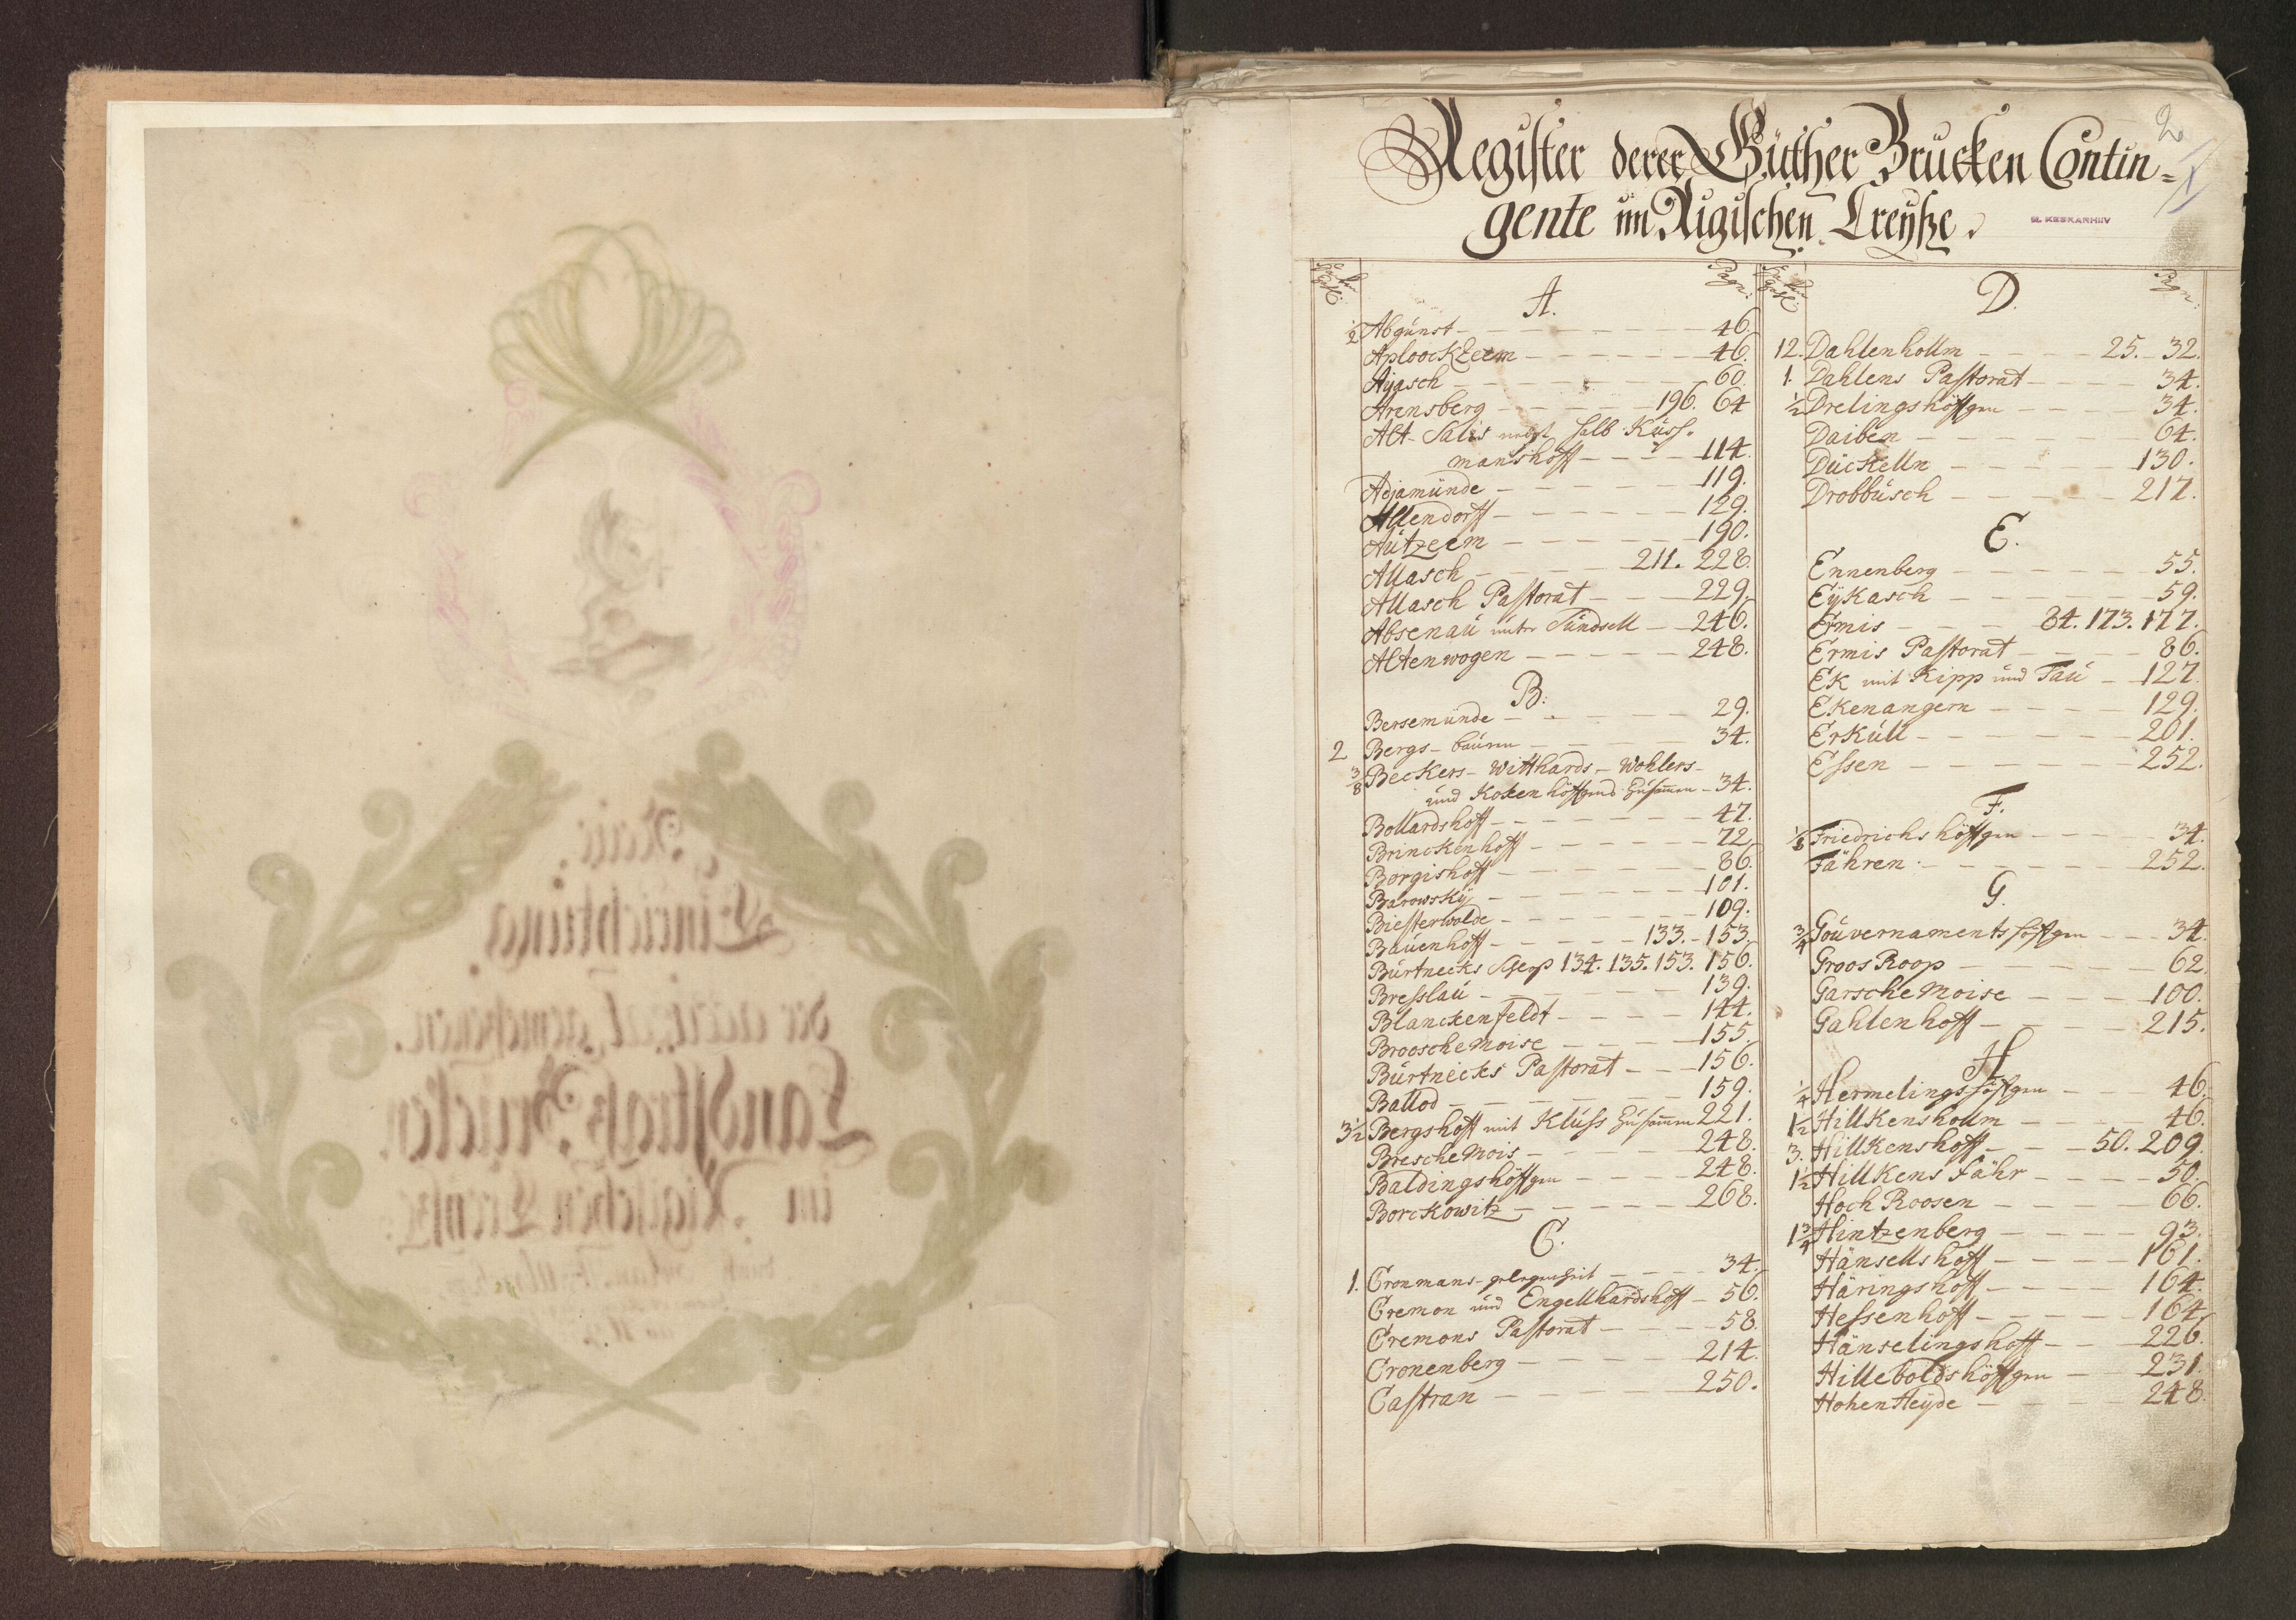 Neüe
Einrichtüng
der accürat gemeßenen
Landstraß Brücken
im Rigischen Creÿße
2
Register derer Güther Brücken Contin=
gente im Rigischen Creÿße.
RL KESKARHIIV
Pagn:
A.
1/2 Abgünst 46.
Aploockzeem 46.
Ayasch 60.
Arensberg 196. 64
Alt-Salis nebst halb Küss-
manshoff 114.
Adjamünde 119.
Allendorff 129.
Aützeem 190.
Allasch 211. 228.
Allasch Pastorat 229.
Absenaü unter Sündsell 246.
Altenwogen 248.
B:
Bersemünde 29.
2 Bergs-baüren 34.
3/8 Beckers- Witthards- Wohlers-
und Koken höffgens Züsammen 34.
Bollardshoff 47.
Brinckenhoff 72.
Borgishoff 86.
Barowskÿ 101.
Biesterwolde 109.
Baüenhoff 133. 153.
Bürtnecks Schloß 134. 135. 153. 156.
Bresslaü 139.
Blanckenfeldt 144.
Broosche Moise 155.
Bürtnecks Pastorat 156.
Ballod 159.
3 1/2 Bergshoff mit Klüss Züsammen 221.
Bresche Mois 248.
Baldingshöffgen 248.
Borckowitz 268.
C.
1. Cronmans-gelegenheit 34.
Cremon und Engelhardshoff 56.
Cremons Pastorat 58.
Cronenberg 214.
Castran 250.
Pagn:
D.
12. Dahlenhollm 25. 32.
1. Dahlens Pastorat 34.
1/2 Drelingshöffgen 34.
Daiben 64.
Dückelln 130.
Drobbüsch 217.
E.
Ennenberg 55.
Eÿkasch 59.
Ermis 84. 173. 177.
Ermis Pastorat 86.
Ek mit Kipp und Taü 127.
Ekenangern 129.
Erküll 201.
Essen 252.
F.
1/8 Friedrichs höffgen 34.
Fähren 252.
G.
3/4 Goüvernaments höffgen 34.
Groos Roop 62.
Garsche Moise 100.
Gahlenhoff 215.
H
1/4 Hermelingshöffgen 46.
1 1/2 Hillkensholm 46.
3. Hillkenshoff 50. 209.
1 1/2 Hillkens fähr 50.
Hoch Roosen 66.
1 3/4 Hintzenberg 93.
Hänsellshoff 161.
Häringshoff 164.
Hessenhoff 164.
Hänselingshoff 226.
Hilleboldshöffgen 231.
Hohen Heÿde 248.